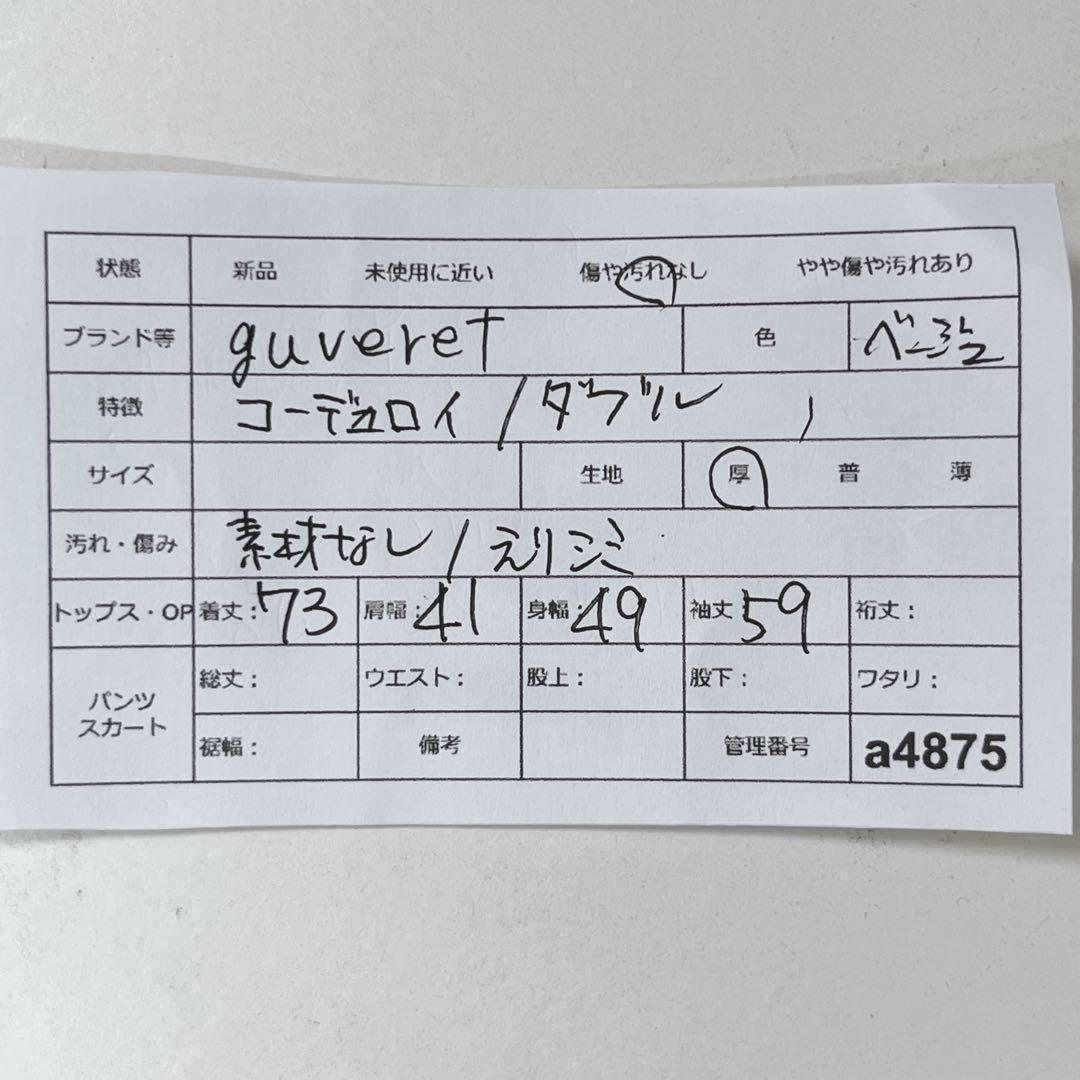 状態 新品 未使用に近い 傷や汚れなし やや傷や汚れあり
ブランド等 guveret 色 ベージュ
特徴 コーデュロイ / ダブル /
サイズ 生地 厚 普 薄
汚れ・傷み 素材なし / えりシミ
トップス・OP 着丈：73 肩幅：41 身幅：49 袖丈 59 裄丈：
パンツ スカート
総丈： ウエスト： 股上： 股下： ワタリ：
裾幅： 備考 管理番号 a4875